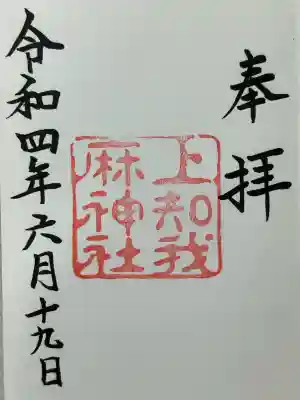 奉拝
上知我
麻神社
令和四年六月十九日